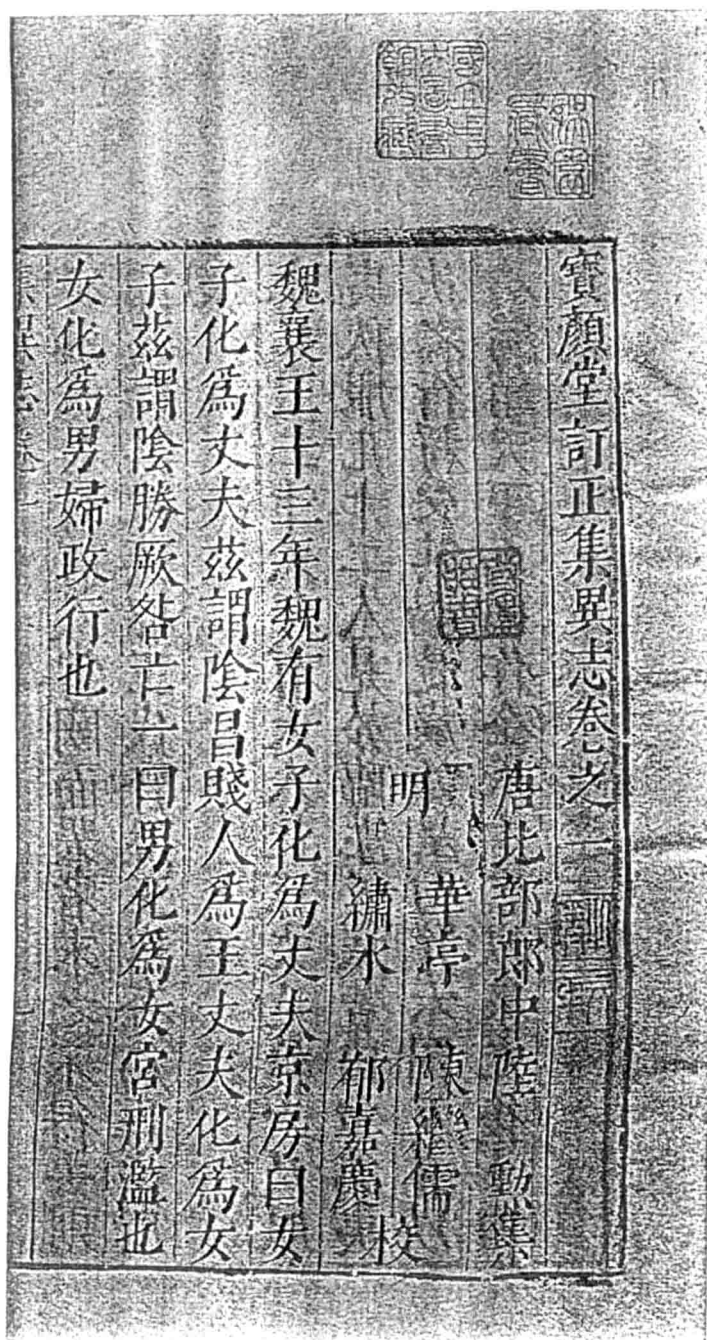 寶顏堂訂正集異志卷之一
唐比部郎中陸 勳集
明 華亭 陳繼儒
繡水 郁嘉慶 校
魏襄王十三年魏有女子化爲丈夫京房曰女
子化爲丈夫茲謂陰昌賤人爲王丈夫化爲女
子茲謂陰勝厥咎亡一曰男化爲女宮刑濫也
女化爲男婦政行也